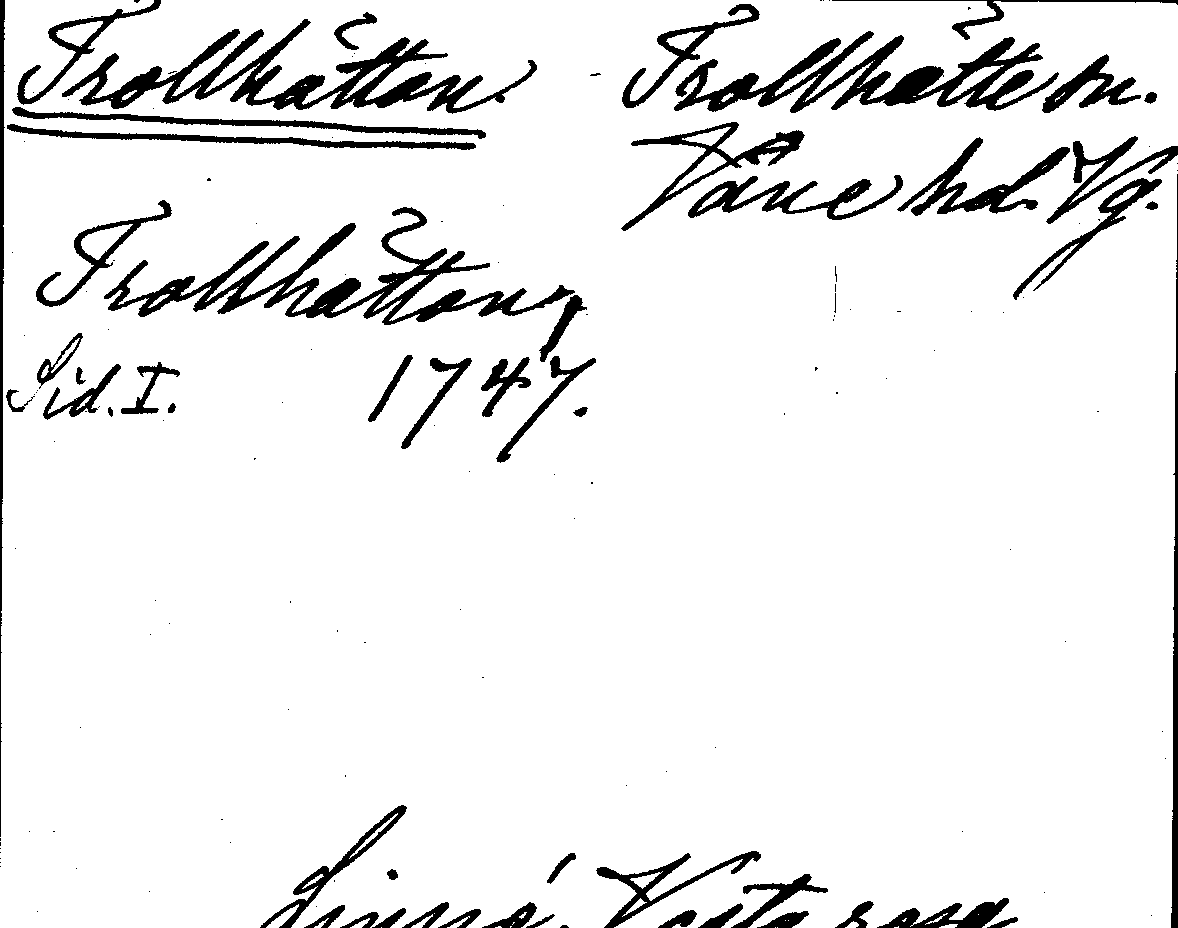 Trollhättan. - Trollhätte sn.
Väne hd. Vg.
Trollhättan,
Sid. I. 1747.
Linné, Västg. resa